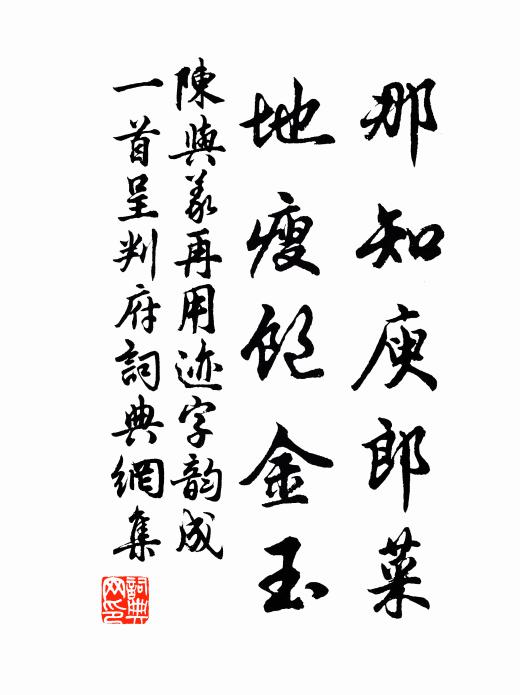 那知庾郎菜
地瘦飽金玉
陳與義再用迹字韵成
一首呈判府詞典網集
詞典
网印